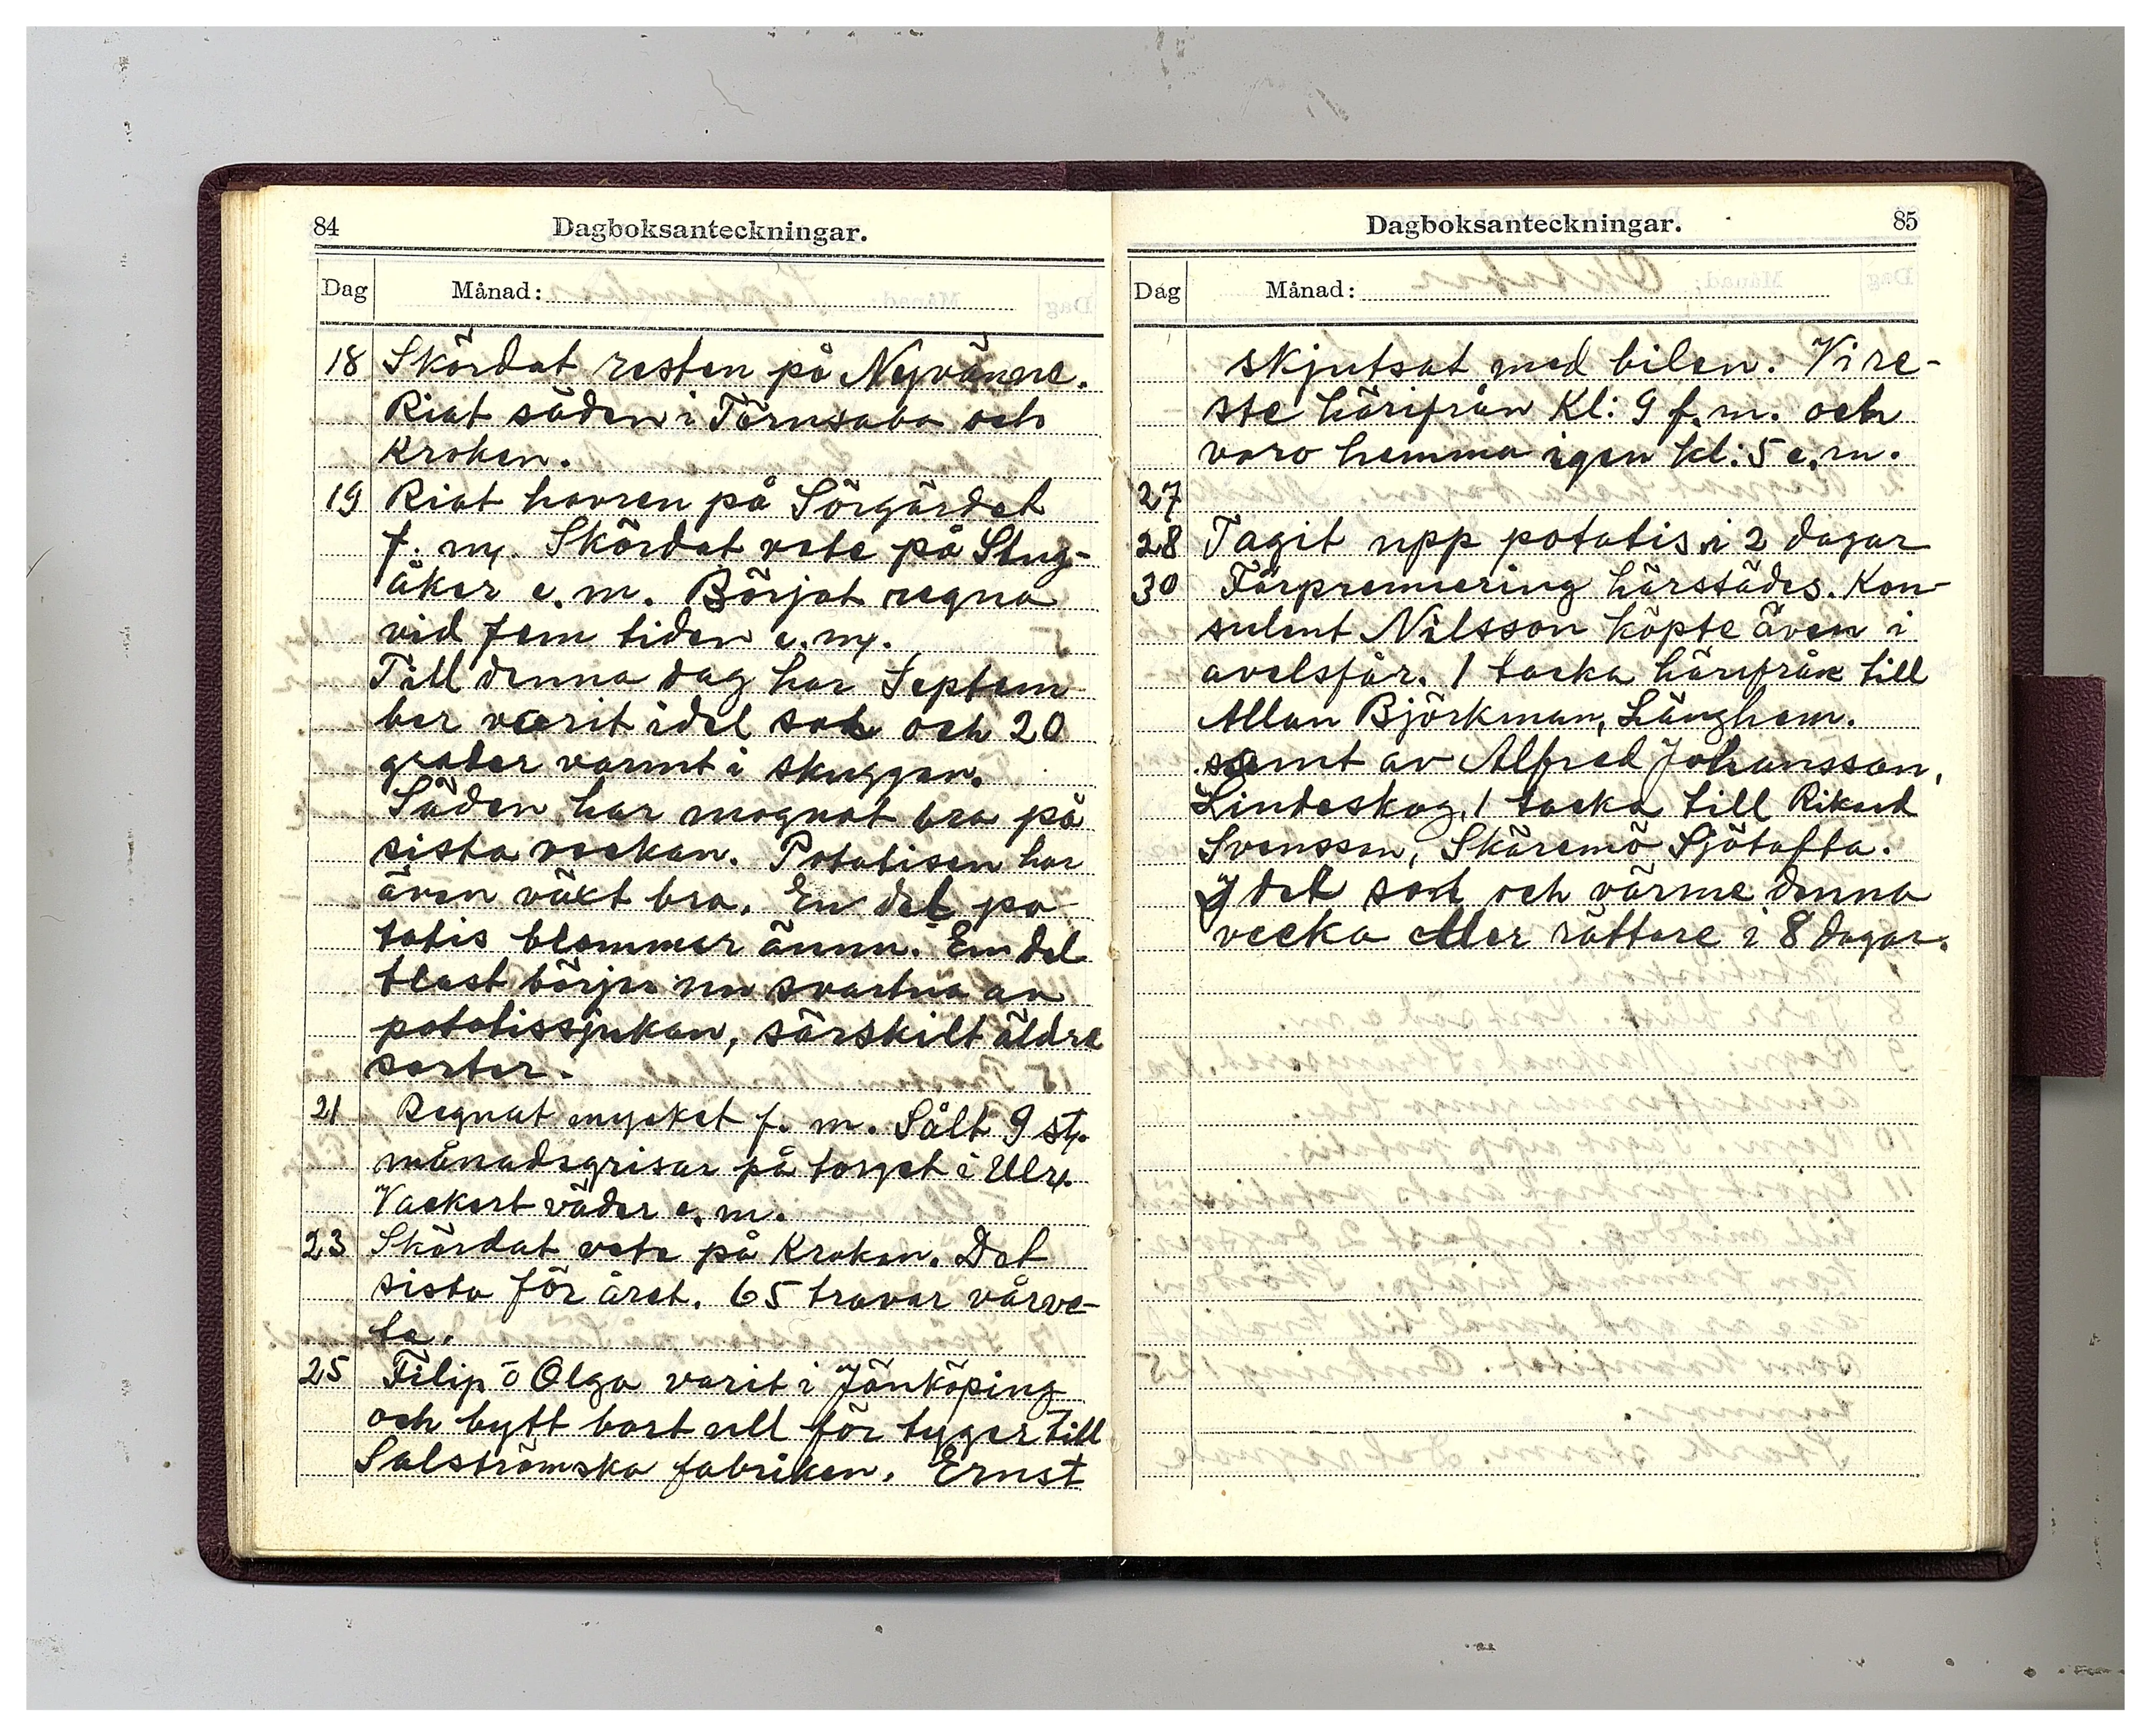 84
Dagboksanteckningar.
Dag
Månad:
18 Skördat resten på Nyvänne.
Riat säden i Törnsaba och
Kroken.
19 Riat havren på Sörgärdet
f. m. Skördat vete på Stug-
åker e. m. Börjat regna
vid fem tiden e. m.
Till denna dag har Septem
ber varit idel sol och 20
grader varmt i skuggan.
Säden har mognat bra på
sista veckan. Potatisen har
även växt bra. En del po
tatis blommar ännu. En del
blast börja nu svartna av
potatissjukan, särskilt äldre
sorter.
21 Regnat mycket f. m. Sålt 9 st.
månadsgrisar på torget i Ulr.
Vackert väder e. m.
23 Skördat vete på Kroken. Det
sista för året. 65 travar vårve-
te.
25 Filip o Olga varit i Jönköping
och bytt bort ull för tyger till
Salströmska fabriken. Ernst
Dagboksanteckningar.
85
Dag
Månad:
skjutsat med bilen. Vi re-
ste härifrån Kl: 9 f. m. och
voro hemma igen kl: 5 e. m.
27
28 Tagit upp potatis i 2 dagar
30 Fårpremiering härstädes. Kon
sulent Nilsson köpte även i
avelsfår. 1 tacka härifrån till
Allan Björkman, Länghem.
samt av Alfred Johansson,
Lindeskog, 1 tacka till Rikard
Svensson, Skäremö Sjötofta.
Idel sol och värme denna
vecka eller rättare i 8 dagar.